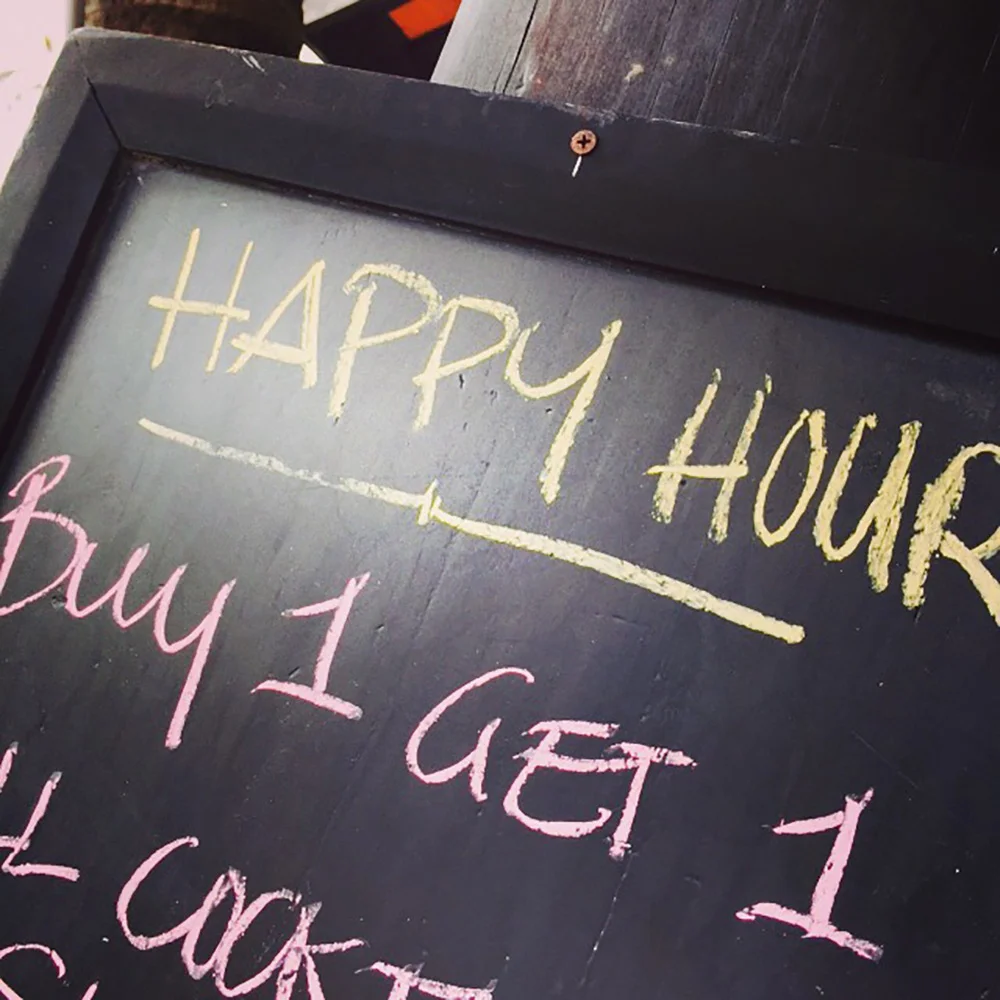 HAPPY HOUR
Buy 1 GET 1